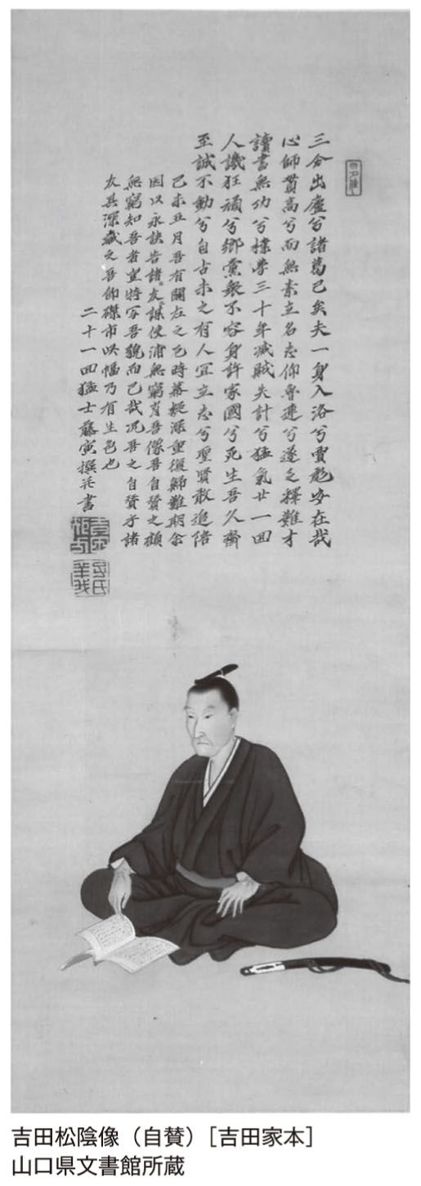 三分出廬兮諸葛已矣夫一身入洛兮賈彪安在哉
心師貫高兮而無素立名志仰魯連兮遂乏釋難才
讀書無功兮樸學三十年滅賊失計兮猛氣廿一回
人譏狂頑兮郷黨衆不容身許家國兮死生吾久齊
至誠不動兮自古未之有人宜立志兮聖賢敢追陪
己未五月吾有關左之厄時幕疑深重復歸難期余
因以永訣告諸友謀使浦無窮肖吾像吾自賛之顧
無窮知吾者豈特写吾貌而已哉況吾之自賛乎諸
友其深蔵之吾即磔市此幅乃有生色也
二十一回猛士藤寅撰并書
吉田松陰像（自賛）［吉田家本］
山口県文書館所蔵